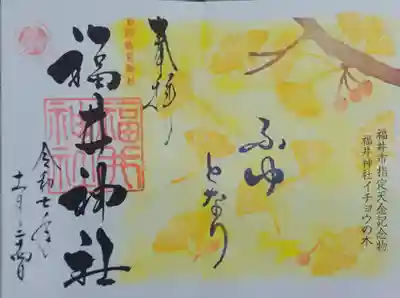 福井市指定天念記念物
福井神社イチョウの木
ふゆ
となり
奉拝
福井神社
福井神社
令和七年
十一月二十四日